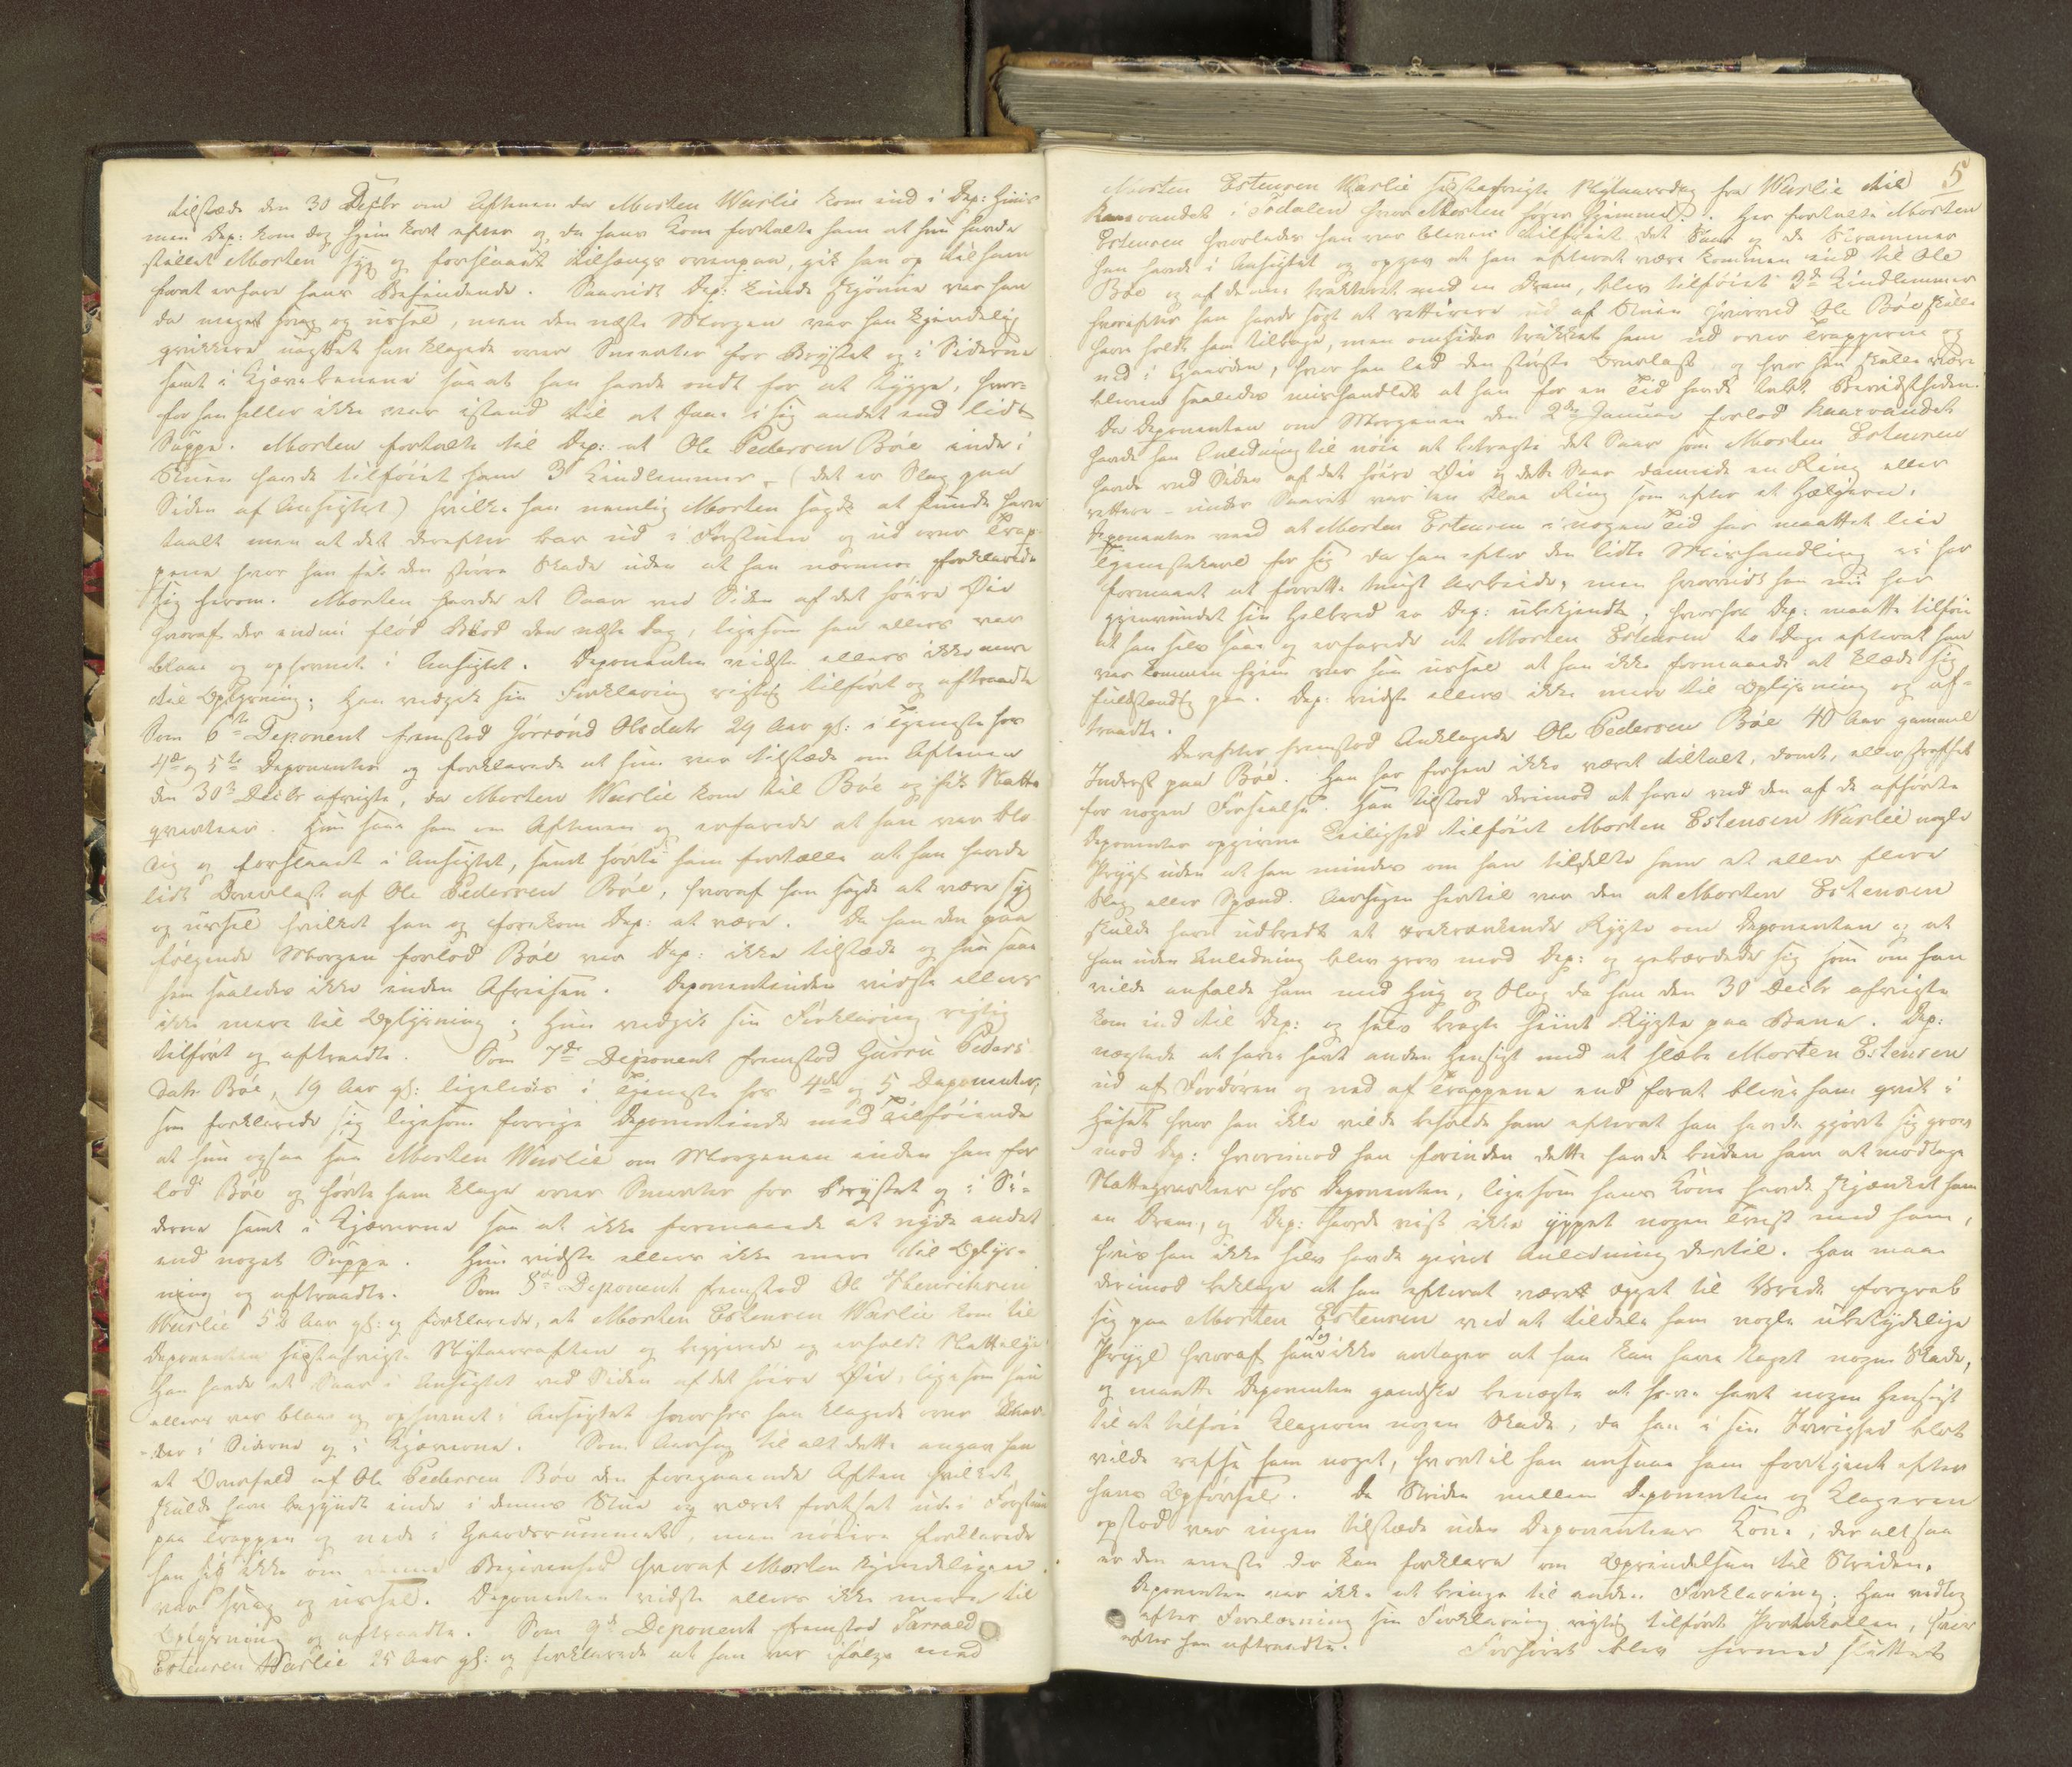 tilstæde den 30 Decbr om Aftenen da Morten Waslie kom ind i Dep: Huus
men Dep: kom dog hjem kort efter og da hans Kone fortalte ham at hun havde
stillet Morten syg og forslaaet tilsengs ovenpaa, gik han op til ham
forat erfare hans Befindende. Saavidt Dep: kunde skjønne var han
da meget svag og ussel, men den næste Morgen var han kjendelig
qvikkere uagtet han klagede over Smerter for Brystet og i Siderne
samt i Kjævebenene saa at han havde ondt for at tygge, hvor-
for han heller ikke var istand til at faae i sig andet end lidt
Suppe. Morten fortalte til Dep: at Ole Pedersen Böe inde i
Stuen havde tilföiet ham 3 Kindlemmer (det er Slag paa
Siden af Ansigtet) hvilke han nemlig Morten sagde at kunde have
taalt men at det derefter bar ud i Forstuen og ud over Trap-
pene hvor han fik den större Skade uden at han nærmere forklarede
sig herom. Morten havde et Saar ved Siden af det höire Öie
hvoraf der endnu flöd Blod den næste Dag, ligesom han ellers var
blaae og ophovnet i Ansigtet. Deponenten vidste ellers ikke mere
til Oplysning; han vedgik sin Forklaring rigtig tilfört og aftraadte
Som 6te Deponent fremstod Olsdatr 29 Aar gl: i Tjeneste hos
4de og 5te Deponenter og forklarede at hun var tilstæde om Aftenen
den 30te Decbr afvigte, da Morten Waslie kom til Böe og fik Natte
qvarteer. Hun saae ham om Aftenen og erfarede at han var blo-
dig og forslaaet i Ansigtet, samt hörte ham fortælle at han havde
lidt Overlast af Ole Pedersen Böe, hvoraf han sagde at være syg
og ussel hvilket han og forekom Dep: at være. Da han den paa
fölgende Morgen forlod Böe var Dep: ikke tilstæde og hun saae
ham saaledes ikke inden Afreisen. Deponentinden vidste ellers
ikke mere til Oplysning; hun vedgik sin Forklaring rigtig
tilfört og aftraadte. Som 7de Deponent fremstod Guru Peders
datr Böe, 19 Aar gl: ligeledes i Tjeneste hos 4de og 5 Deponenter,
som forklarede sig ligesom forrige Deponentinde med Tilföiende
at hun ogsaa saae Morten Waslie om Morgenen inden han for
lod Böe og hörte ham klage over Smerter for Brystet og i Si-
derne samt i Kjæverne saa at ikke formaaede at nyde andet
end noget Suppe. Hun vidste ellers ikke mere til Oplys-
ning og aftraadte. Som 8de Deponent fremstod Ole Henriksen
Waslie 52 Aar gl: og forklarede, at Morten Estensen Waslie kom til
Deponenten sidstafvigte Nytaarsaften og begjerede og erholdt Nattelye
Han havde et Saar i Ansigtet ved Siden af det höire Öie, ligesom han
ellers var blaae og ophovnet i Ansigtet hvorhos han klagede over Skar-
der i Siderne og i Kjæverne. Som Aarsag til alt dette angav han
et Overfald af Ole Pedersen Böe den foregaaende Aften hvilket
skulde have begyndt inde i dennes Stue og været fortsat ude i Forstuen
paa Trappen og nede i Gaardsrummet, men nöiere forklarede
han sig ikke om denne Begivenhed hvoraf Morten kjendeligen
var svag og ussel. Deponenten vidste ellers ikke mere til
Oplysning og aftraadte. Som 9de Deponent fremstod Tarald
Estensen Waslie 25 Aar gl: og forklarede at han var ifölge med
5
Morten Estensen Waslie sidstafvigte Nytaarsdag fra Waslie til
Kaasvandet i Todalen hvor Morten hörer hjemme. Her fortalte Morten
Estensen hvorledes han var bleven tilföiet det Saar og de Skrammer
han havde i Ansigtet og opgav at han efterat være kommen ind til Ole
Böe og af denne trakteret med en Dram, blev tilföiet 3de Kindlemmer
hvorefter han havde sögt at rettirere ud af Stuen hvorved Ole Böe skulle
have holdt ham tilbage, men omsider trukket ham ud over Trappene og
ned i Gaarden, hvor han led den störste Overlast og hvor han skulle være
bleven saaledes mishandlet at han for en Tid havde tabt Bevidstheden.
Da Deponenten om Morgenen den 2den Januar forlod Kaarvandet
havde han Anledning til nöie at betragte det Saar som Morten Estensen
havde ved Siden af det höire Öie og dette Saar dannede en Ring eller
rettere - under Saaret var en blaa Ring som efter et Hælejern.
Deponenten veed at Morten Estensen i nogen Tid har maattet leie
Tjenestekarl for sig da han efter den lidte Mishandling ei har
formaaet at forrette tungt Arbeide, men hvorvidt han nu har
gjenvundet sin Helbred er Dep: ubekjendt; hvorhos Dep: maatte tilföie
at han selv saae og erfarede at Morten Estensen to Dage efterat han
var kommen hjem var saa ussel at han ikke formaaede at klæde sig
fuldstændig paa. Dep: vidste ellers ikke mere til Oplysning og af-
traadte.
Derefter fremstod Anklagede Ole Pedersen Böe 40 Aar gammel
Inderst paa Böe. Han har forhen ikke været tiltalt, dömt, eller straffet
for nogen Forseelse. Han tilstod derimod at have ved den af de afhörte
Deponenter opgivne Leilighed tilföiet Morten Estensen Waslie nogle
Prygl uden at han mindes om han tildelte ham et eller flere
Slag eller Spænd. Aarsagen hertil var den at Morten Estensen
skulde have udbredt et ærekrænkende Rygte om Deponenten og at
han uden Anledning blev grov mod Dep: og gebærdede sig som om han
vilde anfalde ham med Hug og Slag da han den 30 Decbr afvigte
kom ind til Dep: og selv bragte hiint Rygte paa Bane. Dep:
nægtede at have havt anden Hensigt med at slæbe Morten Estensen
ud af Fordören og ned af Trappene end forat blive ham qvit i
Huset hvor han ikke vilde beholde ham efterat han havde gjort sig grov
mod Dep: hvorimod han forinden dette havde buden ham at modtage
Natteqvarteer hos Deponenten, ligesom hans Kone havde skjænket ham
en Dram, og Dep: havde vist ikke yppet nogen Trette med ham,
hvis han ikke selv havde givet Anledning dertil. Han maae
derimod beklage at han efterat været ægget til Vrede forgreb
sig paa Morten Estensen ved at tildele ham nogle ubetydelige
Prygl hvoraf han dog ikke antager at han kan have taget nogen Skade,
og maatte Deponenten gandske benægte at have havt nogen Hensigt
til at tilföie Klageren nogen Skade, da han i sin Ivrighed blot
vilde refse ham noget, hvortil han ansaae ham fortjent efter
hans Opförsel. Da Striden mellem Deponenten og Klageren
opstod var ingen tilstæde uden Deponentens Kone, der altsaa
er den eneste der kan forklare om Oprindelsen til Striden.
Deponenten var ikke at bringe til anden Forklaring; Han vedtog
efter Forelæsning sin Forklaring rigtig tilfört Protokollen, hvor
efter han aftraadte. Forhöret blev hermed sluttet